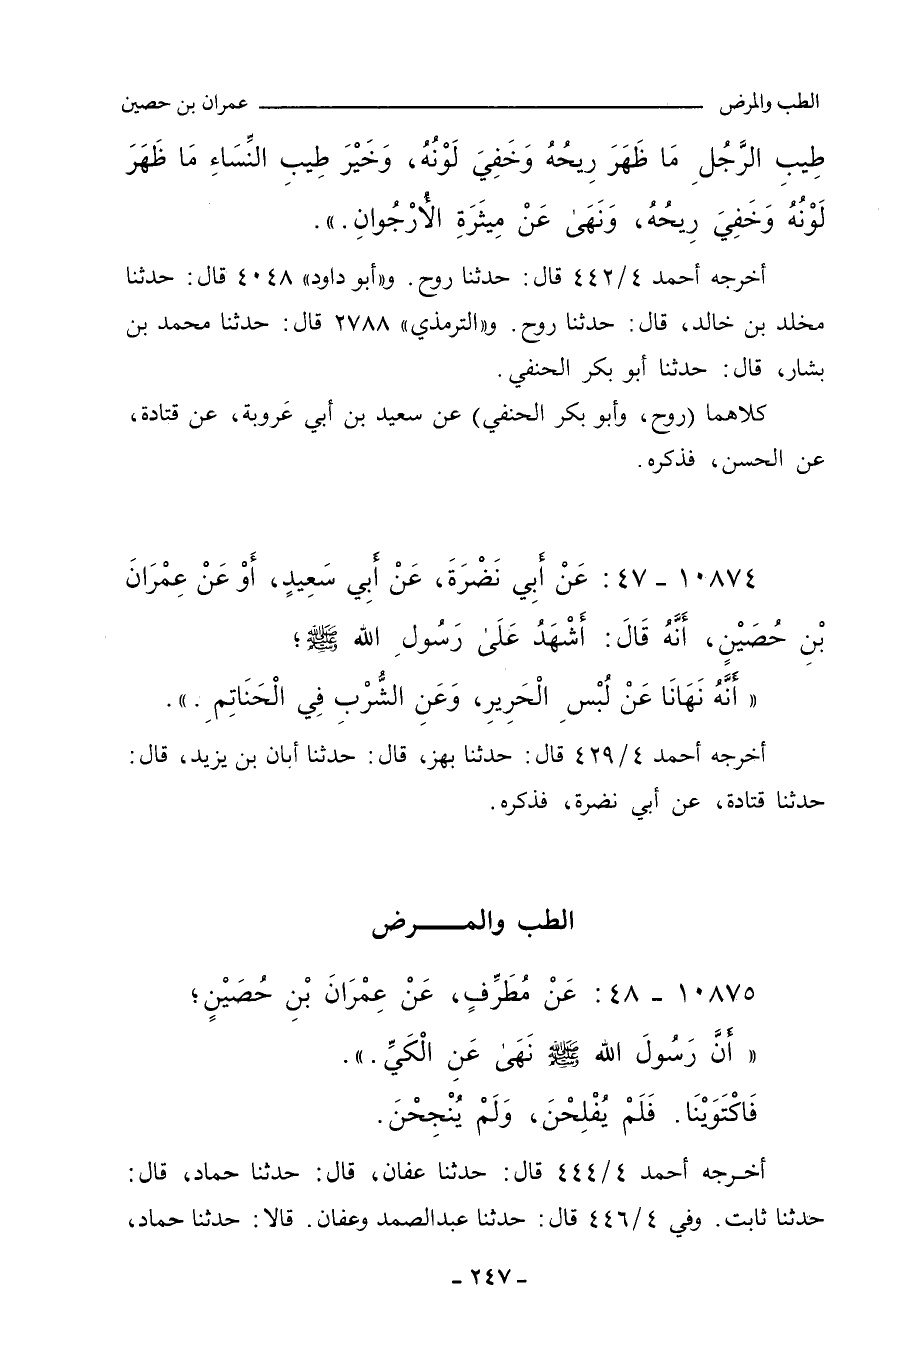 الطب والمرض ــــــــــــــــــ عمران بن حصين
طِيبِ الرَّجُلِ مَا ظَهَرَ رِيحُهُ وَخَفِيَ لَوْنُهُ، وَخَيْرَ طِيبِ النِّسَاءِ مَا ظَهَرَ
لَوْنُهُ وَخَفِيَ رِيحُهُ، وَنَهَىٰ عَنْ مِيثَرَةِ الْأُرْجُوانِ.».
أخرجه أحمد ٤/٤٤٢ قال: حدثنا روح. و«أبو داود» ٤٠٤٨ قال: حدثنا
مخلد بن خالد، قال: حدثنا روح. و«الترمذي» ٢٧٨٨ قال: حدثنا محمد بن
بشار، قال: حدثنا أبو بكر الحنفي.
كلاهما (روح، وأبو بكر الحنفي) عن سعيد بن أبي عَروبة، عن قتادة،
عن الحسن، فذكره.
١٠٨٧٤ - ٤٧: عَنْ أَبِي نَضْرَةَ، عَنْ أَبِي سَعِيدٍ، أَوْ عَنْ عِمْرَانَ
بْنِ حُصَيْنٍ، أَنَّهُ قَالَ: أَشْهَدُ عَلَىٰ رَسُولِ الله ﷺ؛
« أَنَّهُ نَهَانَا عَنْ لُبْسِ الْحَرِيرِ، وَعَنِ الشُّرْبِ فِي الْحَنَاتِمِ.».
أخرجه أحمد ٤/٤٢٩ قال: حدثنا بهز، قال: حدثنا أبان بن يزيد، قال:
حدثنا قتادة، عن أبي نضرة، فذكره.
الطب والمـــــرض
١٠٨٧٥ - ٤٨: عَنْ مُطَرِّفٍ، عَنْ عِمْرَانَ بْنِ حُصَيْنٍ؛
« أَنَّ رَسُولَ الله ﷺ نَهَىٰ عَنِ الْكَيِّ.».
فَاكْتَوَيْنَا. فَلَمْ يُفْلِحْنَ، وَلَمْ يُنْجِحْنَ.
أخـرجه أحمد ٤/٤٤٤ قال: حدثنا عفان، قال: حدثنا حماد، قال:
حدثنا ثابت. وفي ٤/٤٤٦ قال: حدثنا عبدالصمد وعفان. قالا: حدثنا حماد،
- ٢٤٧ -